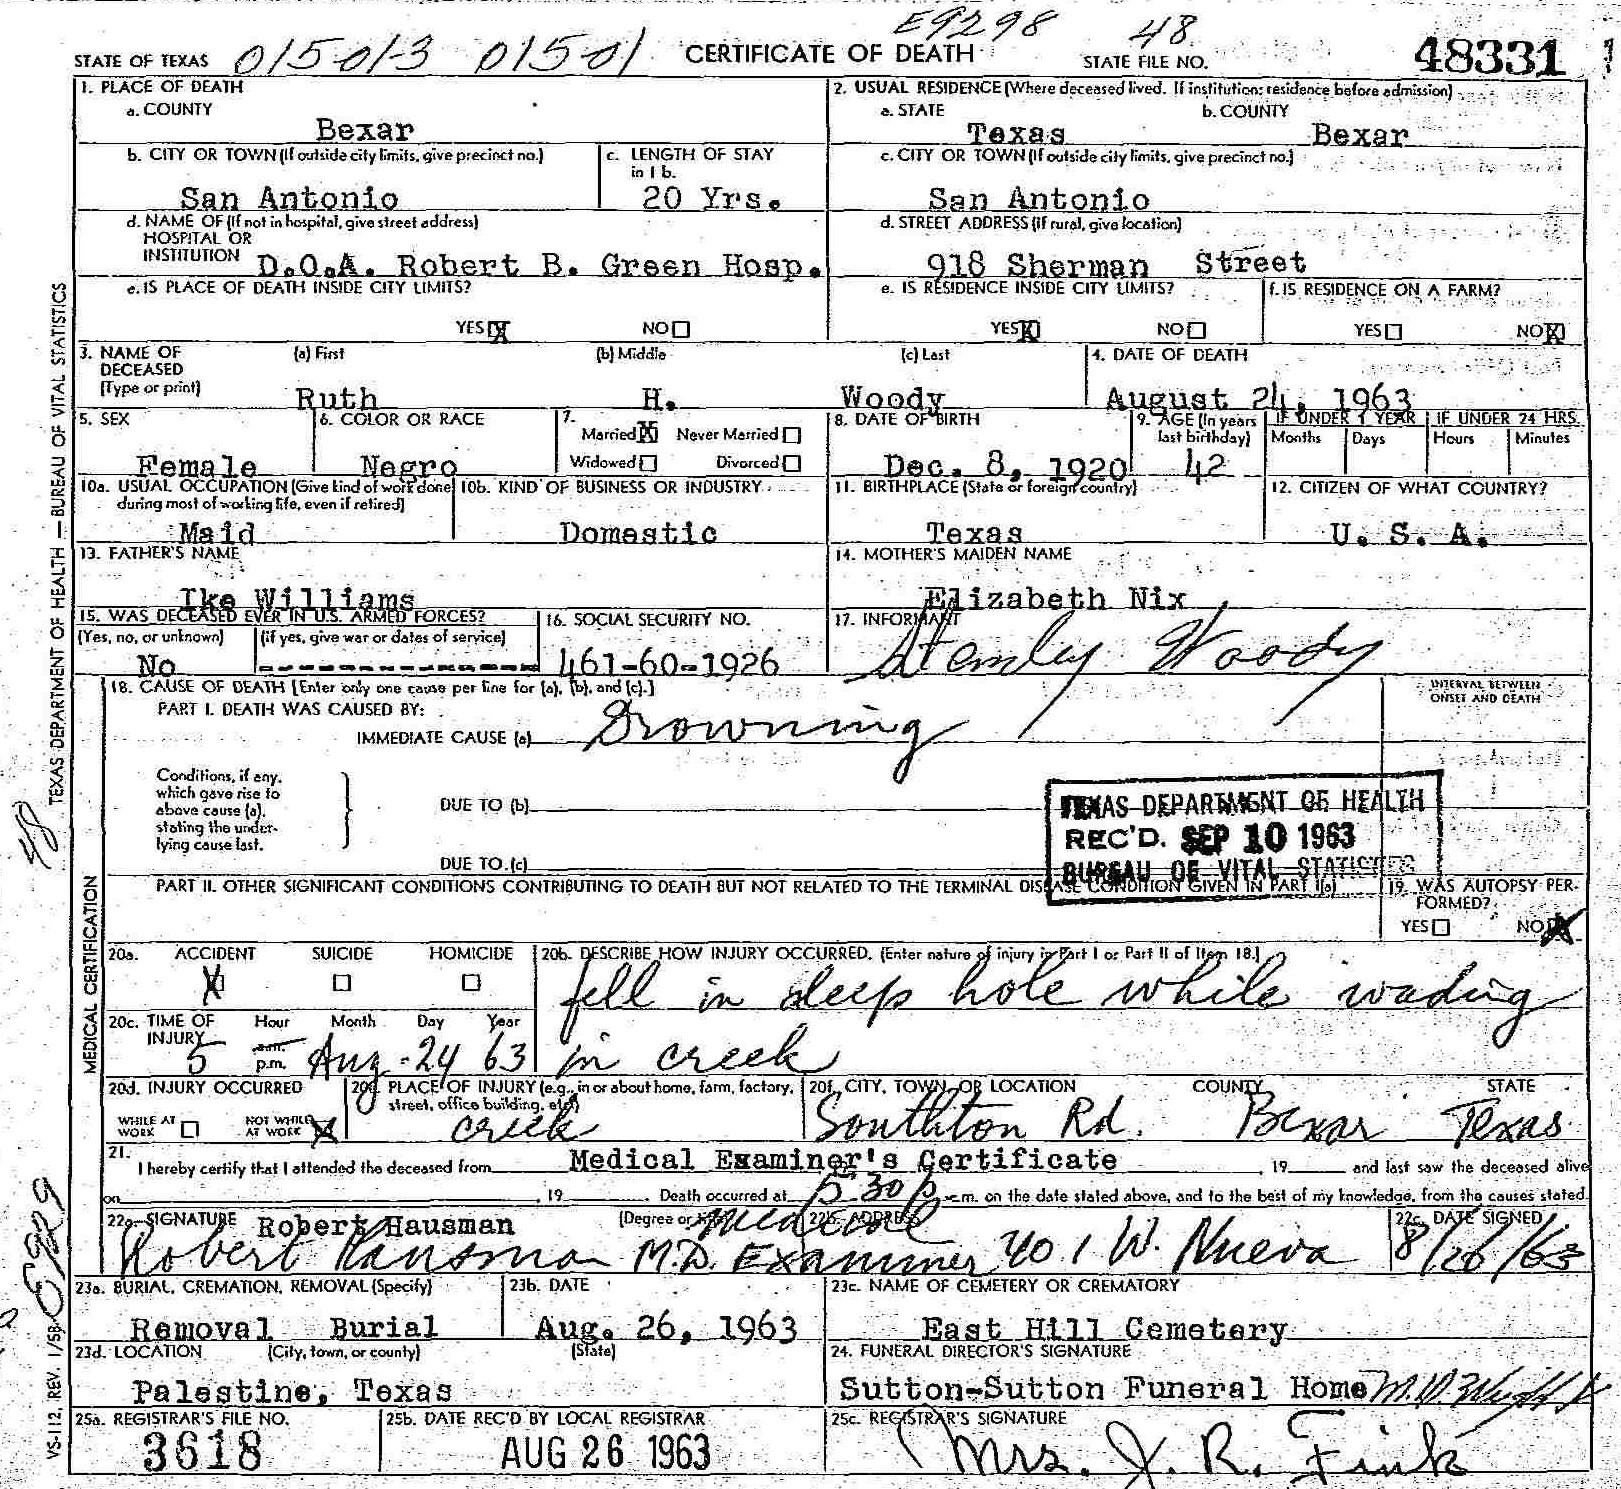 E9298 48
STATE OF TEXAS 015013 01501 CERTIFICATE OF DEATH STATE FILE NO. 48331
1. PLACE OF DEATH
a. COUNTY
Bexar
2. USUAL RESIDENCE (Where deceased lived. If institution: residence before admission)
a. STATE b. COUNTY
Texas Bexar
b. CITY OR TOWN (If outside city limits, give precinct no.)
San Antonio
c. LENGTH OF STAY
in 1 b.
20 Yrs.
c. CITY OR TOWN (If outside city limits, give precinct no.)
San Antonio
d. NAME OF (If not in hospital, give street address)
HOSPITAL OR
INSTITUTION D.O.A. Robert B. Green Hosp.
d. STREET ADDRESS (If rural, give location)
918 Sherman Street
e. IS PLACE OF DEATH INSIDE CITY LIMITS?
YES X NO
e. IS RESIDENCE INSIDE CITY LIMITS?
YES X NO
f. IS RESIDENCE ON A FARM?
YES NO X
3. NAME OF
DECEASED
(Type or print)
(a) First (b) Middle (c) Last
Ruth H. Woody
4. DATE OF DEATH
August 24, 1963
5. SEX
Female
6. COLOR OR RACE
Negro
7.
Married X Never Married
Widowed Divorced
8. DATE OF BIRTH
Dec. 8, 1920
9. AGE (In years
last birthday)
42
IF UNDER 1 YEAR IF UNDER 24 HRS.
Months Days Hours Minutes
10a. USUAL OCCUPATION (Give kind of work done
during most of working life, even if retired)
Maid
10b. KIND OF BUSINESS OR INDUSTRY
Domestic
11. BIRTHPLACE (State or foreign country)
Texas
12. CITIZEN OF WHAT COUNTRY?
U. S. A.
13. FATHER'S NAME
Ike Williams
14. MOTHER'S MAIDEN NAME
Elizabeth Nix
15. WAS DECEASED EVER IN U.S. ARMED FORCES?
(Yes, no, or unknown) (If yes, give war or dates of service)
No
16. SOCIAL SECURITY NO.
461-60-1926
17. INFORMANT
Stanley Woody
18. CAUSE OF DEATH [Enter only one cause per line for (a), (b), and (c).]
PART I. DEATH WAS CAUSED BY:
IMMEDIATE CAUSE (a) Drowning
INTERVAL BETWEEN
ONSET AND DEATH
Conditions, if any,
which gave rise to
above cause (a),
stating the under-
lying cause last.
DUE TO (b)
DUE TO (c)
TEXAS DEPARTMENT OF HEALTH
REC'D. SEP 10 1963
BUREAU OF VITAL STATISTICS
PART II. OTHER SIGNIFICANT CONDITIONS CONTRIBUTING TO DEATH BUT NOT RELATED TO THE TERMINAL DISEASE CONDITION GIVEN IN PART I(a)
19. WAS AUTOPSY PER-
FORMED?
YES NO X
20a. ACCIDENT SUICIDE HOMICIDE
X
20b. DESCRIBE HOW INJURY OCCURRED. (Enter nature of injury in Part I or Part II of Item 18.)
fell in deep hole while wading
in creek
20c. TIME OF
INJURY
Hour Month Day Year
5 a.m. p.m. Aug - 24 63
20d. INJURY OCCURRED
WHILE AT
WORK
NOT WHILE
AT WORK X
20e. PLACE OF INJURY (e.g., in or about home, farm, factory,
street, office building, etc.)
creek
20f. CITY, TOWN, OR LOCATION COUNTY STATE
Southton Rd. Bexar Texas
21.
I hereby certify that I attended the deceased from Medical Examiner's Certificate, 19 and last saw the deceased alive
on , 19 . Death occurred at 5:30 p.m. on the date stated above, and to the best of my knowledge, from the causes stated.
22a. SIGNATURE Robert Hausman (Degree or title) 22b. ADDRESS 22c. DATE SIGNED
Robert Hausman M.D. Medical Examiner 401 W. Nueva 8/26/63
23a. BURIAL, CREMATION, REMOVAL (Specify)
Removal Burial
23b. DATE
Aug. 26, 1963
23c. NAME OF CEMETERY OR CREMATORY
East Hill Cemetery
23d. LOCATION (City, town, or county) (State)
Palestine, Texas
24. FUNERAL DIRECTOR'S SIGNATURE
Sutton-Sutton Funeral Home
25a. REGISTRAR'S FILE NO.
3618
25b. DATE REC'D BY LOCAL REGISTRAR
AUG 26 1963
25c. REGISTRAR'S SIGNATURE
Mrs. J. R. Fink
TEXAS DEPARTMENT OF HEALTH — BUREAU OF VITAL STATISTICS
48
MEDICAL CERTIFICATION
VS-112, REV. 1/58